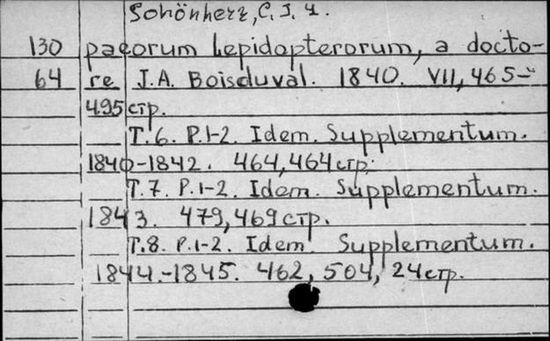 Schönherr, C. J. 4.
130 paeorum Lepidopterorum, a docto-
64 re J.A. Boisduval. 1840. VII, 465-
495 стр.
T.6. P.1-2. Idem. Supplementum.
1840-1842. 464, 464 стр.
T.7. P.1-2. Idem. Supplementum.
1843. 479, 469 стр.
T.8. P.1-2. Idem. Supplementum.
1844.-1845. 462, 504, 24 стр.